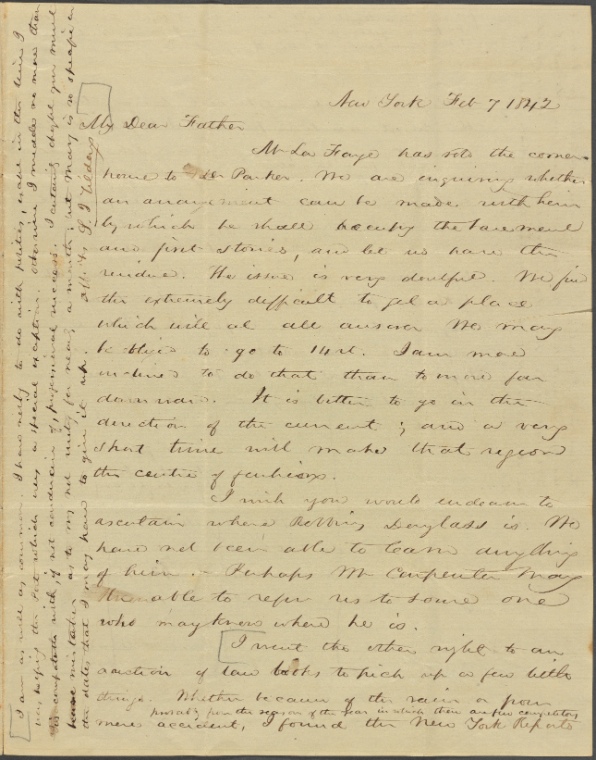 New York Feb 7 1842
My Dear Father
Mr La Farge has rented the corner
house to Dr Parker. We are enquiring whether
an arrangement can be made with him
by which he shall occupy the basement
and first stories, and let us have the
residue. The issue is very doubtful. We find
it extremely difficult to get a place
which will at all answer. We may
be to go to 14 st. I am more
inclined to do that than to move far
down town. It is better to go in the
direction of the current ; and a very
short time will make that region
the centre of fashion.
I wish you would endeavor to
ascertain where Douglass is. We
have not been able to learn anything
of him. - Perhaps Mr Carpenter may
be able to refer us to some one
who may know where he is.
I went the other night to an
auction of law books to pick up a few little
things. Whether because of the rain or from
probably from the season of the year in which there are few competitors
mere accident, I found the New York Reports
I am as well as common. I have nothing to do with politics, in this time I
which was a special exception. otherwise I meddle no more than
is compatible with, if not conducive to, professional success. I certainly
mistaken as to my not writing for nearly a month ; but may is so
the dates that I may have to give it up.
S J Tilden